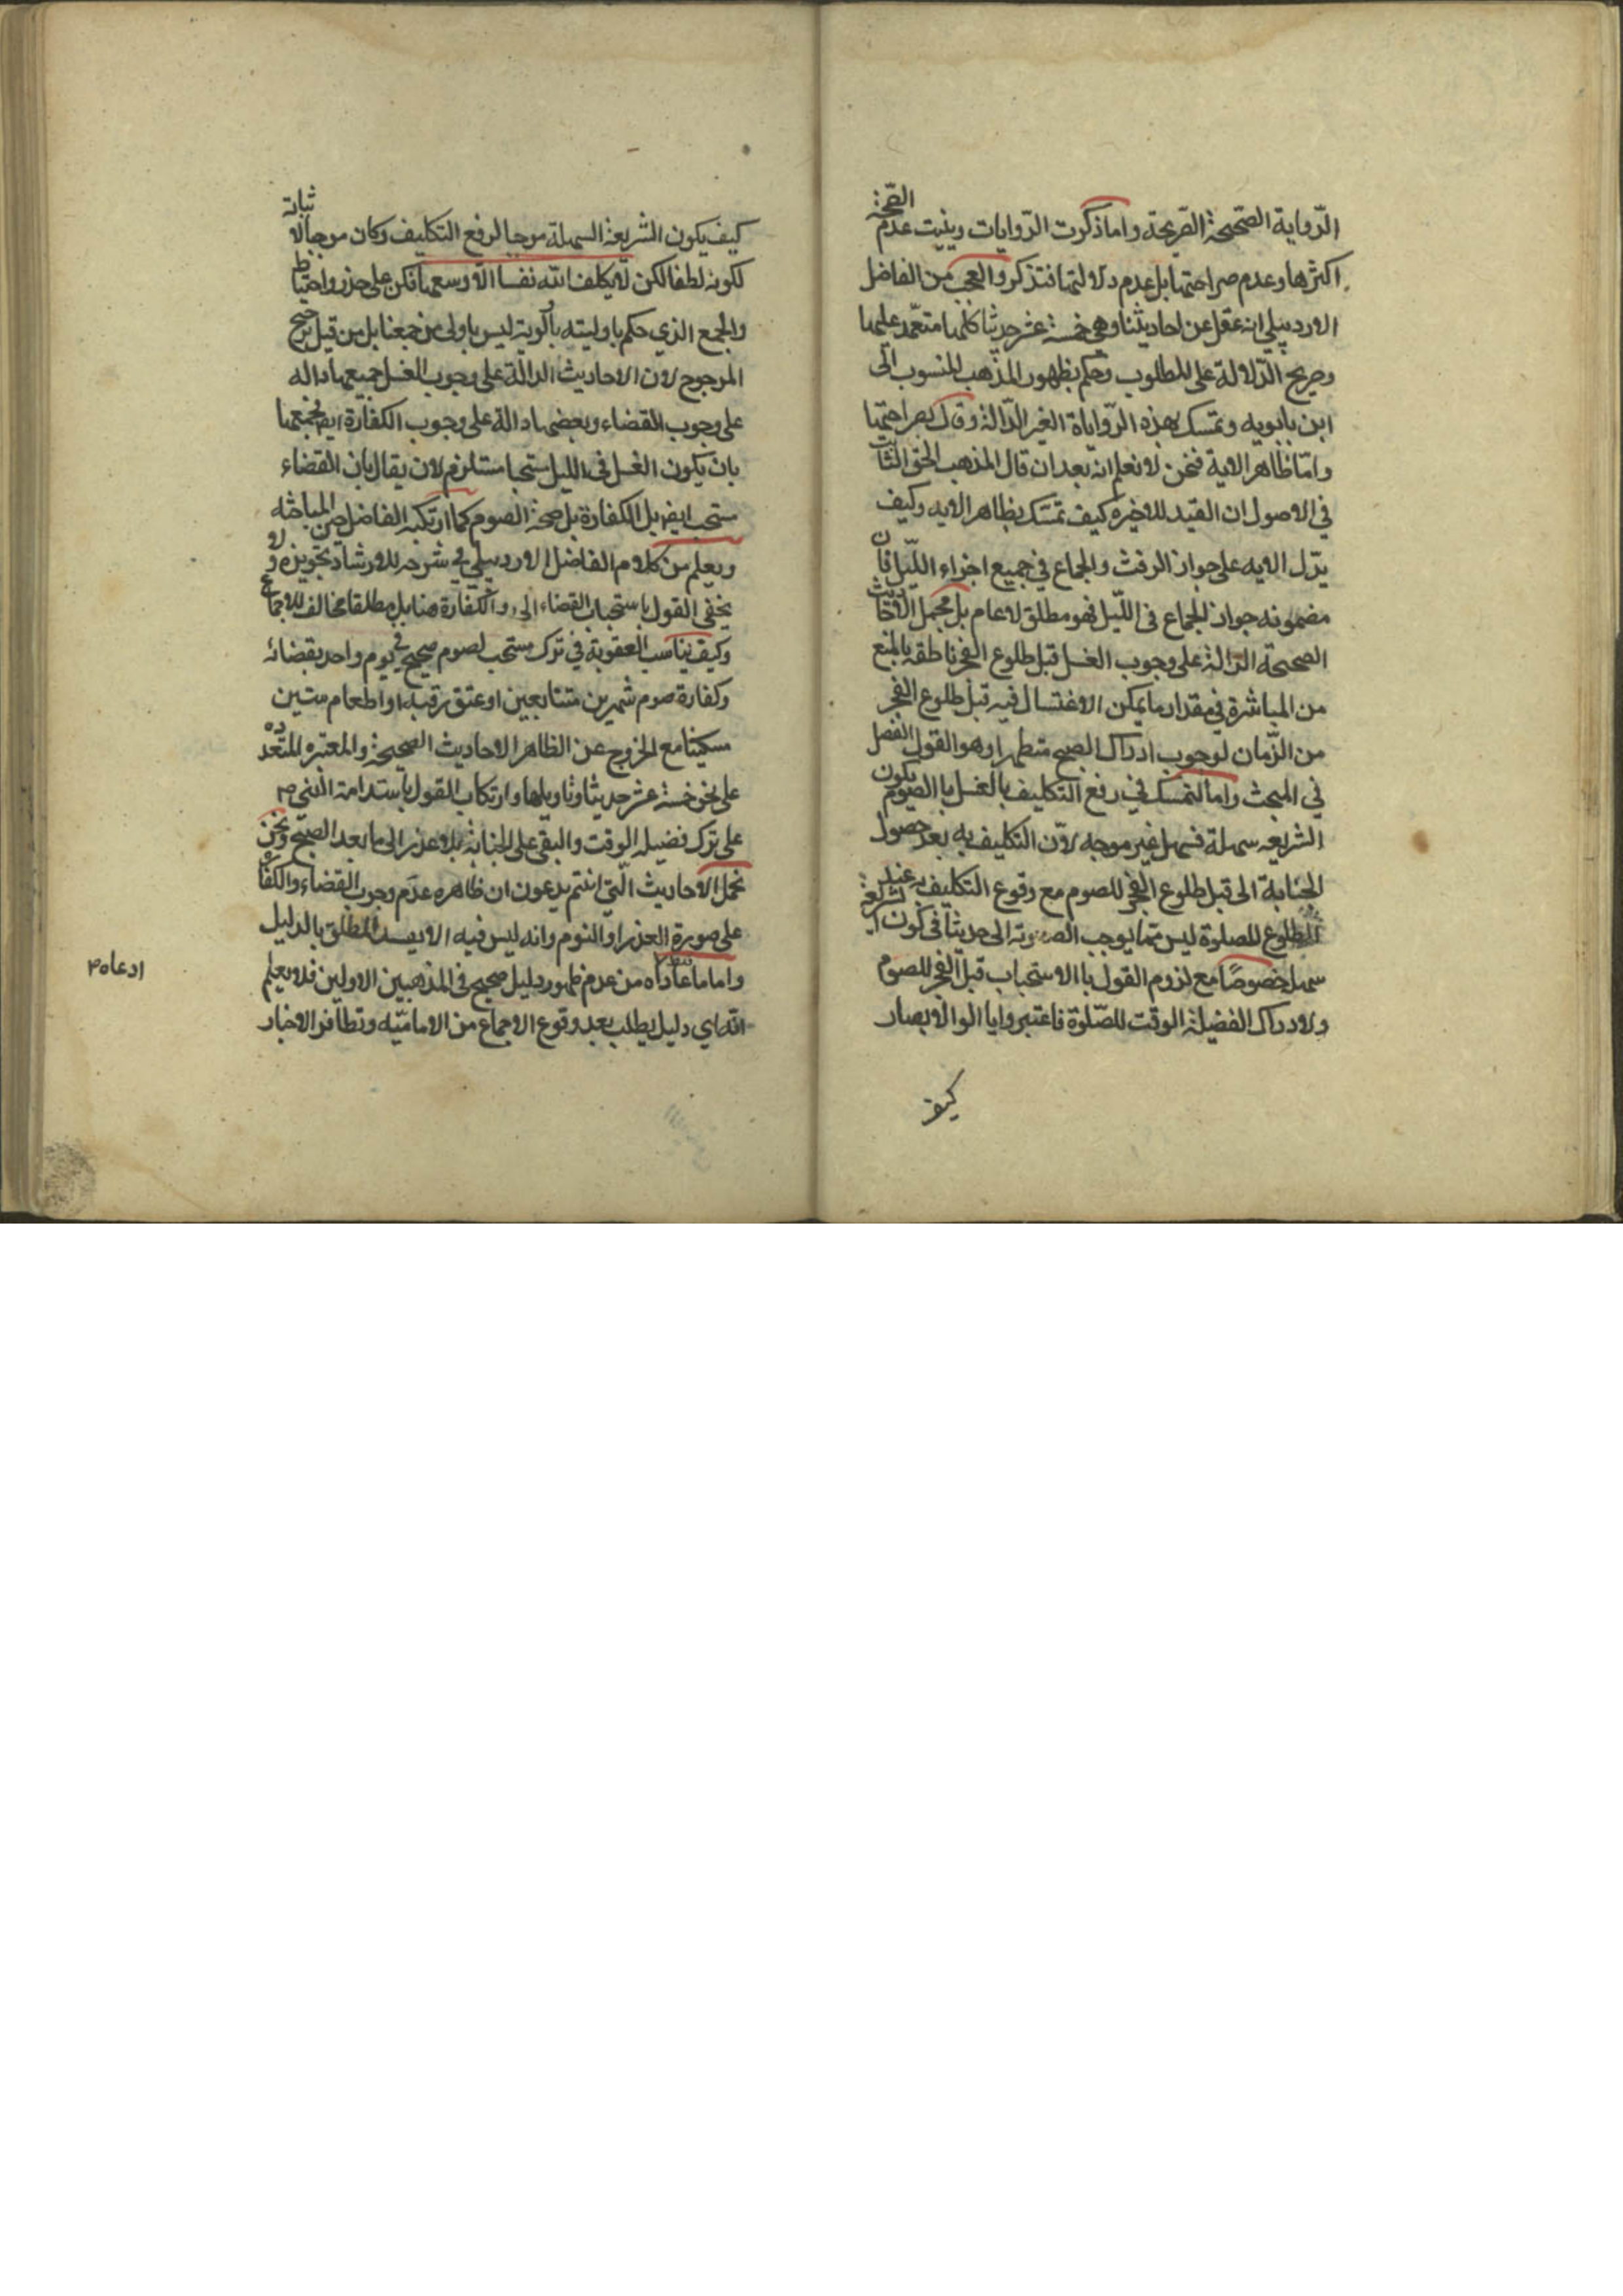 الرّواية الصّحيحة الصّريحة واما ذكرت الرّوايات وبنيت عدم الصّحة
اكثرها وعدم صراحتها بل عدم دلالتها فتذكر والعجب من الفاضل
الاردبيلي انه عقل عن احاديثنا وهي خمسة عشر حديثا كلها متعمد عليها
وصريح الدّلالة على المطلوب وحكم بظهور المذهب المنسوب الى
ابن بابويه وتمسك بهذه الرّواياة الغير الدّالة وقال بصراحتها
وامّا ظاهر الاية فنحن لا نعلم انه بعد ان قال المذهب الحق الثابت
في الاصول ان القيد للاخيرة كيف تمسّك بظاهر الايه وكيف
يدّل الايه على جواز الرفث والجماع في جميع اجزاء اللّيل فان
مضمونه جواز الجماع فى اللّيل فهو مطلق لا عام بل مجمل الاحاديث
الصحيحة الدالة على وجوب الغسل قبل طلوع الفجر ناطقه بالمنع
من المباشرة في مقدار ما يمكن الاغتسال فيه قبل طلوع الفجر
من الزّمان لوجوب ادراك الصبح متطهرا وهو القول الفصل
في المبحث واما التمسك في رفع التكليف بالغسل با الصوم يكون
الشريعه سهلة فسهل غير موجه لاّن التكليف به بعد حصول
الجنابة الى قبل طلوع الفجر للصوم مع وقوع التكليف به عند
الطلوع للصلوة ليس ممّا يوجب الصعوبة الى حديثا فى كون الشريعة
سهل خصوصًا مع لزوم القول با الاستحباب قبل الفجر للصوم
ولادراك الفضيلة الوقت للصّلوة فاعتبروا يا الوالابصار
كيف
كيف يكون الشريعة السهلة موجبا لرفع التكليف وكان موجبا لاثباته
لكونه لطفا لكن لا يكلف الله نفسا الّا وسعها فكن على حذر واحتياط
والجمع الذي حكم باوليته بالوية ليس باولى من جمعنا بل من قبيل ترجيح
المرجوح لان الاحاديث الدالة على وجوب الغسل جميعها داله
على وجوب القضاء وبعضها دالة على وجوب الكفارة ايضا فجمعها
بان يكون الغسل فى الليل مستحبا مستلزم لان يقال بان القضاء
مستحب ايضا بل الكفارة بل صحة الصوم كما ارتكبه الفاضل من المباحثه
ويعلم من كلام الفاضل الاردبيلي في شرحه للارشاد تجويزه ولا
يخفى القول باستحباب القضاء والكفارة هنا بل مطلقا مخالف للاجماع
وكيف يناسب العقوبة في ترك مستحب لصوم صحيح في يوم واحد بقضائه
وكفارة صوم شهرين متتابعين او عتق رقبة او اطعام ستين
مسكينا مع الخروج عن الظاهر الاحاديث الصحيحة والمعتبره المتعدده
على نحو خمسة عشر حديثا وتاويلها وارتكاب القول باستدامة النبي ص
على ترك فضيلة الوقت والبقى على الجنابة بلا عذر الى ما بعد الصبح ونحن
نحمل الاحاديث الّتي انتم يدعون ان ظاهره عدم وجوب القضاء والكفارة
على صورة العذر او النوم وانه ليس فيه الا يفسد المطلق بالدليل
واما ما عاداه من عدم ظهور دليل صحيح فى المذهبين الاولين فلا يعلم
انه اي دليل يطلب بعد وقوع الاجماع من الاماميّه وتظافر الاخبار
ادعاه